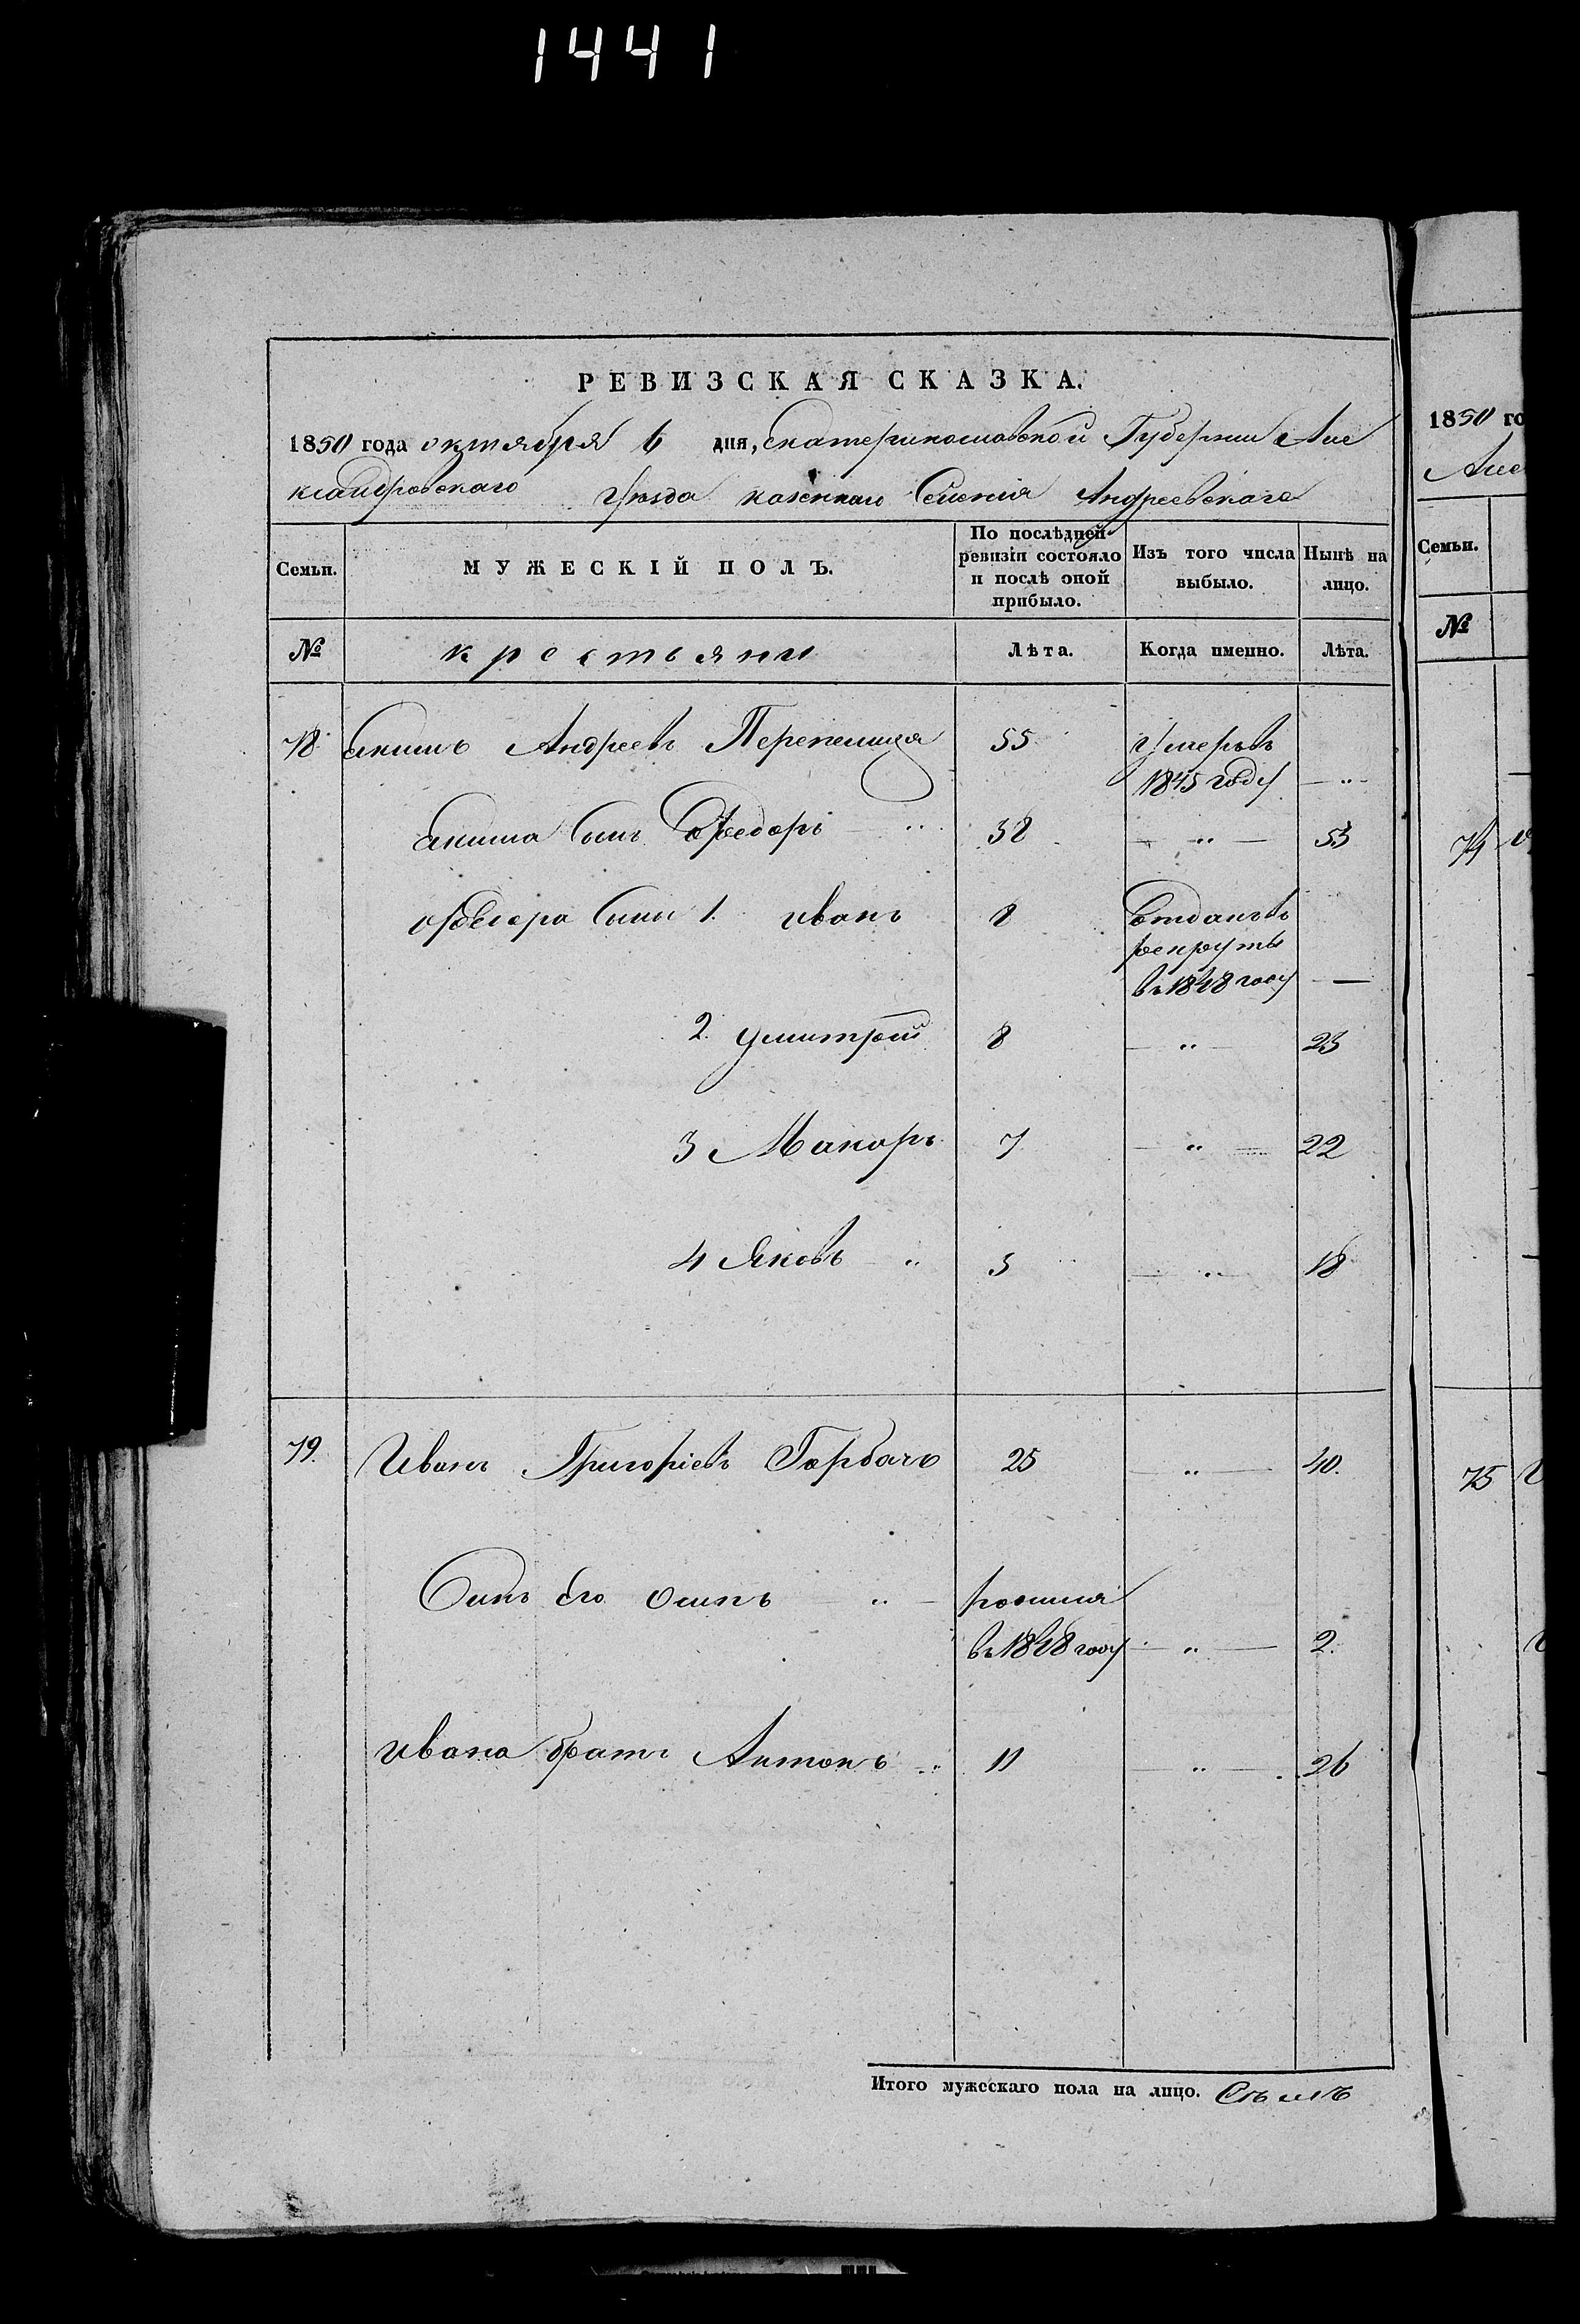 1441
РЕВИЗСКАЯ СКАЗКА.
1850 года октября 6 дня, Екатеринославской Губернии Але
ксандровскаго Уѣзда казеннаго Селенія Андреевскаго
Семьи.
МУЖЕСКІЙ ПОЛЪ.
По послѣдней ревизіи состояло и послѣ оной прибыло.
Изъ того числа выбыло.
Нынѣ на лицо.
№ крестьяни Лѣта. Когда именно. Лѣта.
78. Якимъ Андреевъ Перепелица 55 Умеръ въ
1845 году — " —
Якима Сынъ Федоръ " 38 — " — 53
Федора Сыни 1. Иванъ 8 Отданъ въ
рекруты
въ 1848 году —
2. Дмитрий 8 — " — 23
3 Макаръ 7 — " — 22
4 Яковъ " 3 — " — 18
79. Иванъ Григоріевъ Горбачъ 25 — " — 40.
Синъ Его Осипъ — " — родился
въ 1848 году — " — 2.
Ивана братъ Антонъ " 11 — " — 26
Итого мужескаго пола на лицо. Семь
1850 го
Але
Семьи.
№
74
75